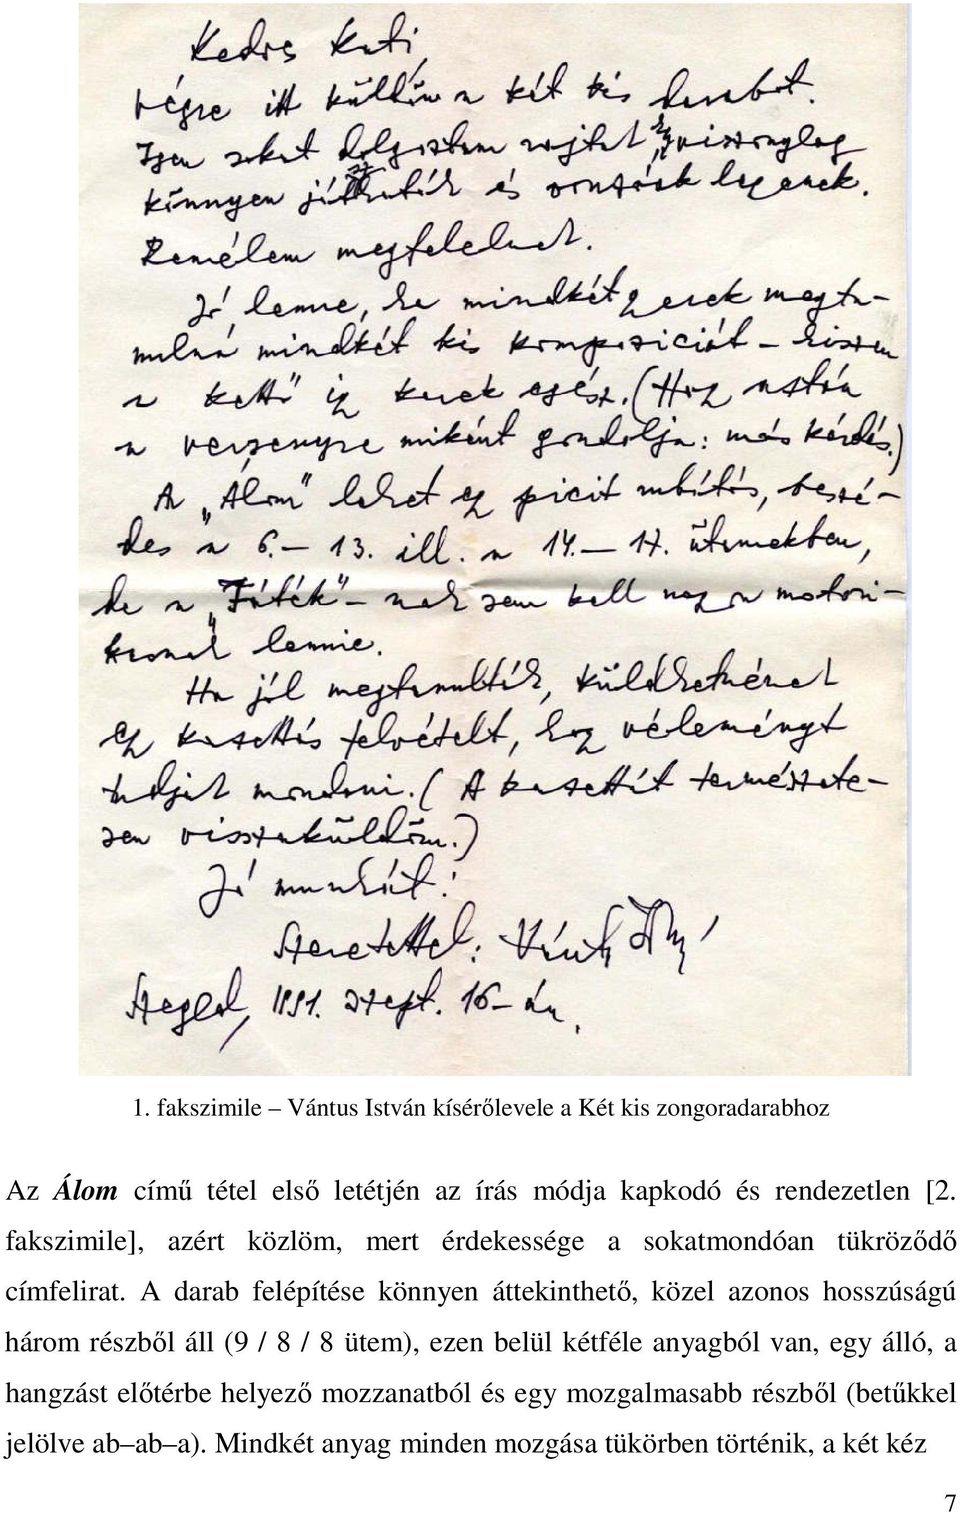 Kedves Kati,
végre itt küldöm a két kis darabot.
Igen sokat dolgoztam rajtuk, így viszonylag
könnyen játszhatók és orntósak legyenek.
Remélem megfelelnek.
Jó lenne, ha mindkét gyerek megta-
nulná mindkét kis kompoziciót – hiszen
a kettő így kerek egész. (Hogy aztán
a versenyre miként gondolja: más kérdés.)
Az „Álom" lehet egy picit rubátós, beszé-
des a 6. – 13. ill. a 14. – 17. ütemekben,
de a „Játék" – nak sem kell nagyon motori-
kusnak lennie.
Ha jól megtanulták, küldhetnének
egy kazettás felvételt, hogy véleményt
tudjak mondani. (A kazettát természete-
sen visszaküldöm.)
Jó munkát!
Szeretettel: Vántus István
Szeged, 1991. szept. 16-án.
1. fakszimile – Vántus István kísérőlevele a Két kis zongoradarabhoz
Az Álom című tétel első letétjén az írás módja kapkodó és rendezetlen [2.
fakszimile], azért közlöm, mert érdekessége a sokatmondóan tükröződő
címfelirat. A darab felépítése könnyen áttekinthető, közel azonos hosszúságú
három részből áll (9 / 8 / 8 ütem), ezen belül kétféle anyagból van, egy álló, a
hangzást előtérbe helyező mozzanatból és egy mozgalmasabb részből (betűkkel
jelölve ab–ab–a). Mindkét anyag minden mozgása tükörben történik, a két kéz
7